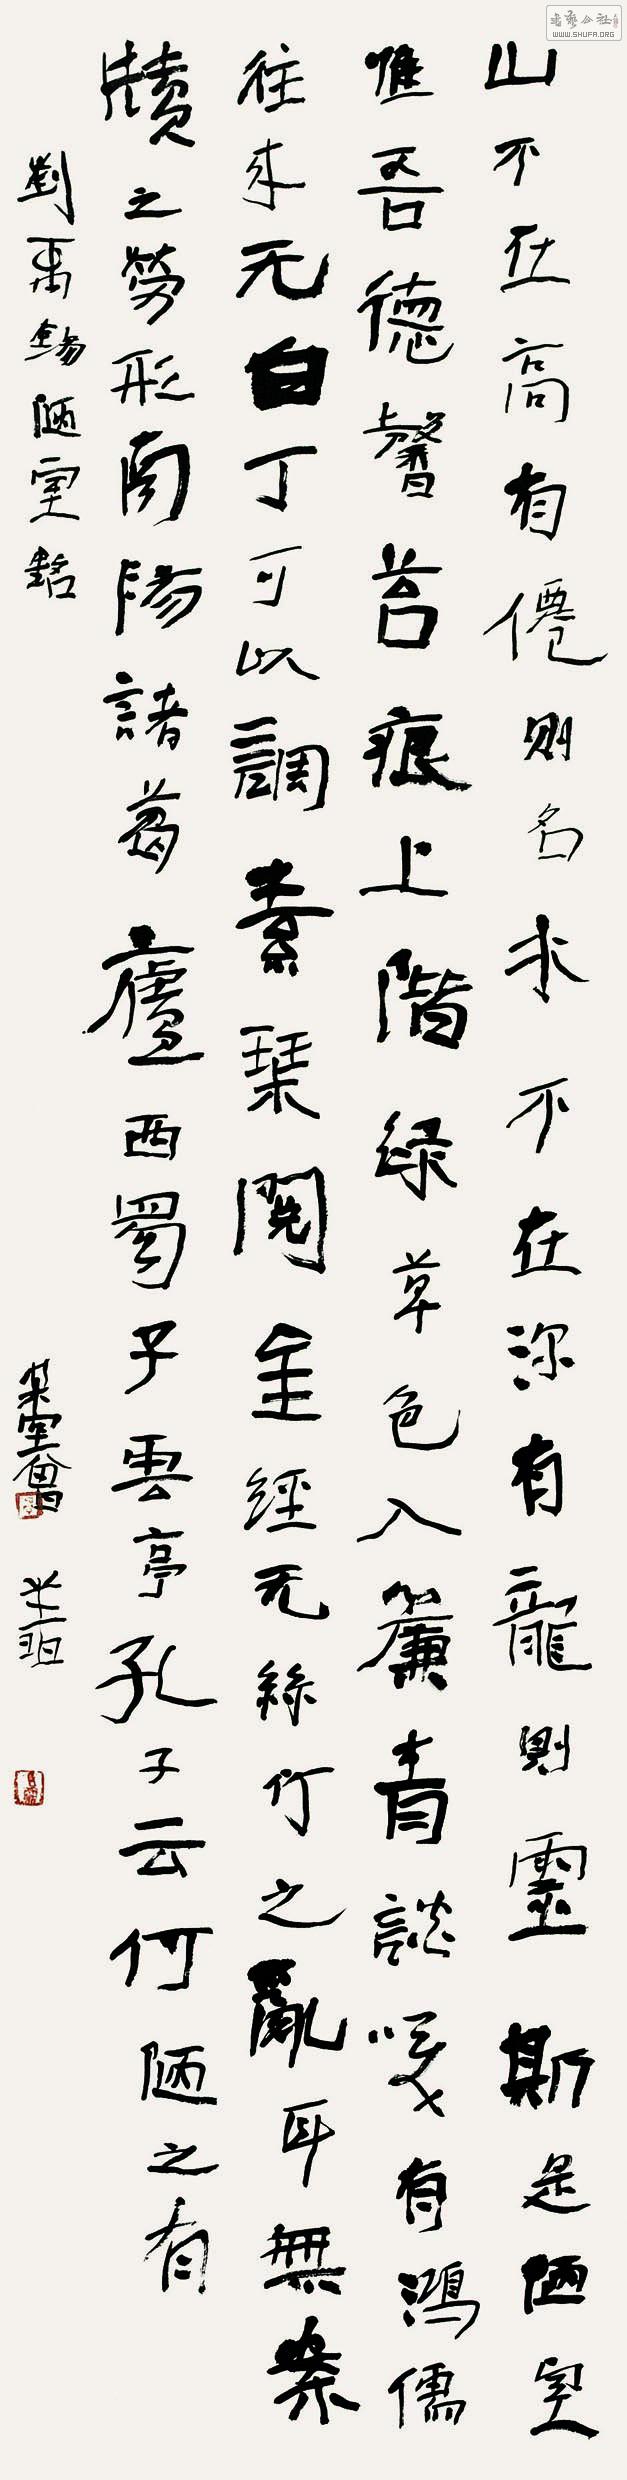 山不在高有僊則名水不在深有龍則靈斯是陋室
唯吾德馨苔痕上階緑草色入簾青談咲有鴻儒
往來无白丁可以調素琹閱金經无絲竹之亂耳無案
牘之勞形南陽諸葛廬西蜀子雲亭孔子云何陋之有
劉禹錫陋室銘
書藝公社
WWW.SHUFA.ORG